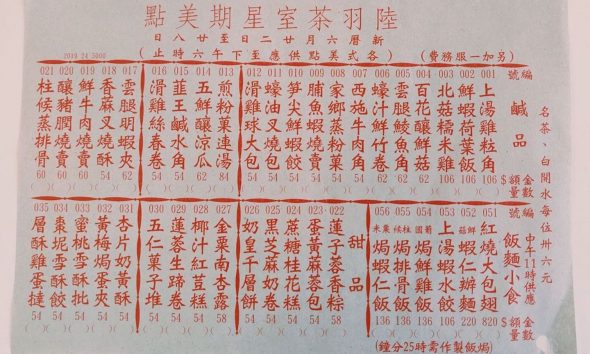 陸羽茶室星期美點
新曆六月廿二日至廿八日
(另加一服務費)
(各式美點供應至下午六時止)
2019 24 5000
名茶、白開水每位卅六元
編號 鹹品 金額$ 數量
001 上湯雞粒角 106 ( )
002 鮮蝦荷葉飯 106 ( )
003 北菇糯米雞 106 ( )
004 百花釀鮮菇 62 ( )
005 雲腿鯪魚角 62 ( )
006 蠔汁鮮竹卷 62 ( )
007 西施牛肉角 54 ( )
008 家鄉蒸粉菓 54 ( )
009 脯魚蝦燒賣 54 ( )
010 笋尖鮮蝦餃 54 ( )
011 蠔油叉燒包 54 ( )
012 滑雞球大包 54 ( )
013 煎粉菓連湯 84 ( )
014 五鮮釀涼瓜 62 ( )
015 韮王鹹水角 54 ( )
016 滑雞絲春卷 54 ( )
017 雲腿明蝦夾 62 ( )
018 香麻叉燒酥 54 ( )
019 鮮牛肉燒賣 54 ( )
020 釀豬膶燒賣 60 ( )
021 柱候蒸排骨 60 ( )
編號 中午11時供應 飯麵小食 金額$ 數量
051 紅燒大包翅 820 ( )
052 鮮菇蝦仁辦麵 220 ( )
053 上湯蝦水餃 106 ( )
054 葡國焗鮮雞飯 106 ( )
055 柱候焗排骨飯 106 ( )
056 粟米焗蝦仁飯 136 ( )
(焗飯製作需時25分鐘)
甜品
022 蓮子蓉香粽 58 ( )
023 蛋黃蔴蓉包 54 ( )
024 蔗糖桂花糕 54 ( )
025 黑芝蔴奶卷 54 ( )
026 奶皇千層餅 54 ( )
027 金粟南杏露 58 ( )
028 椰汁紅荳糕 54 ( )
029 蓮蓉生蹄卷 54 ( )
030 五仁菓子堆 54 ( )
031 杏片奶黃酥 54 ( )
032 黃梅焗蛋夾 54 ( )
033 蜜桃雪酥批 54 ( )
034 棗坭雪酥餃 54 ( )
035 層酥雞蛋撻 54 ( )